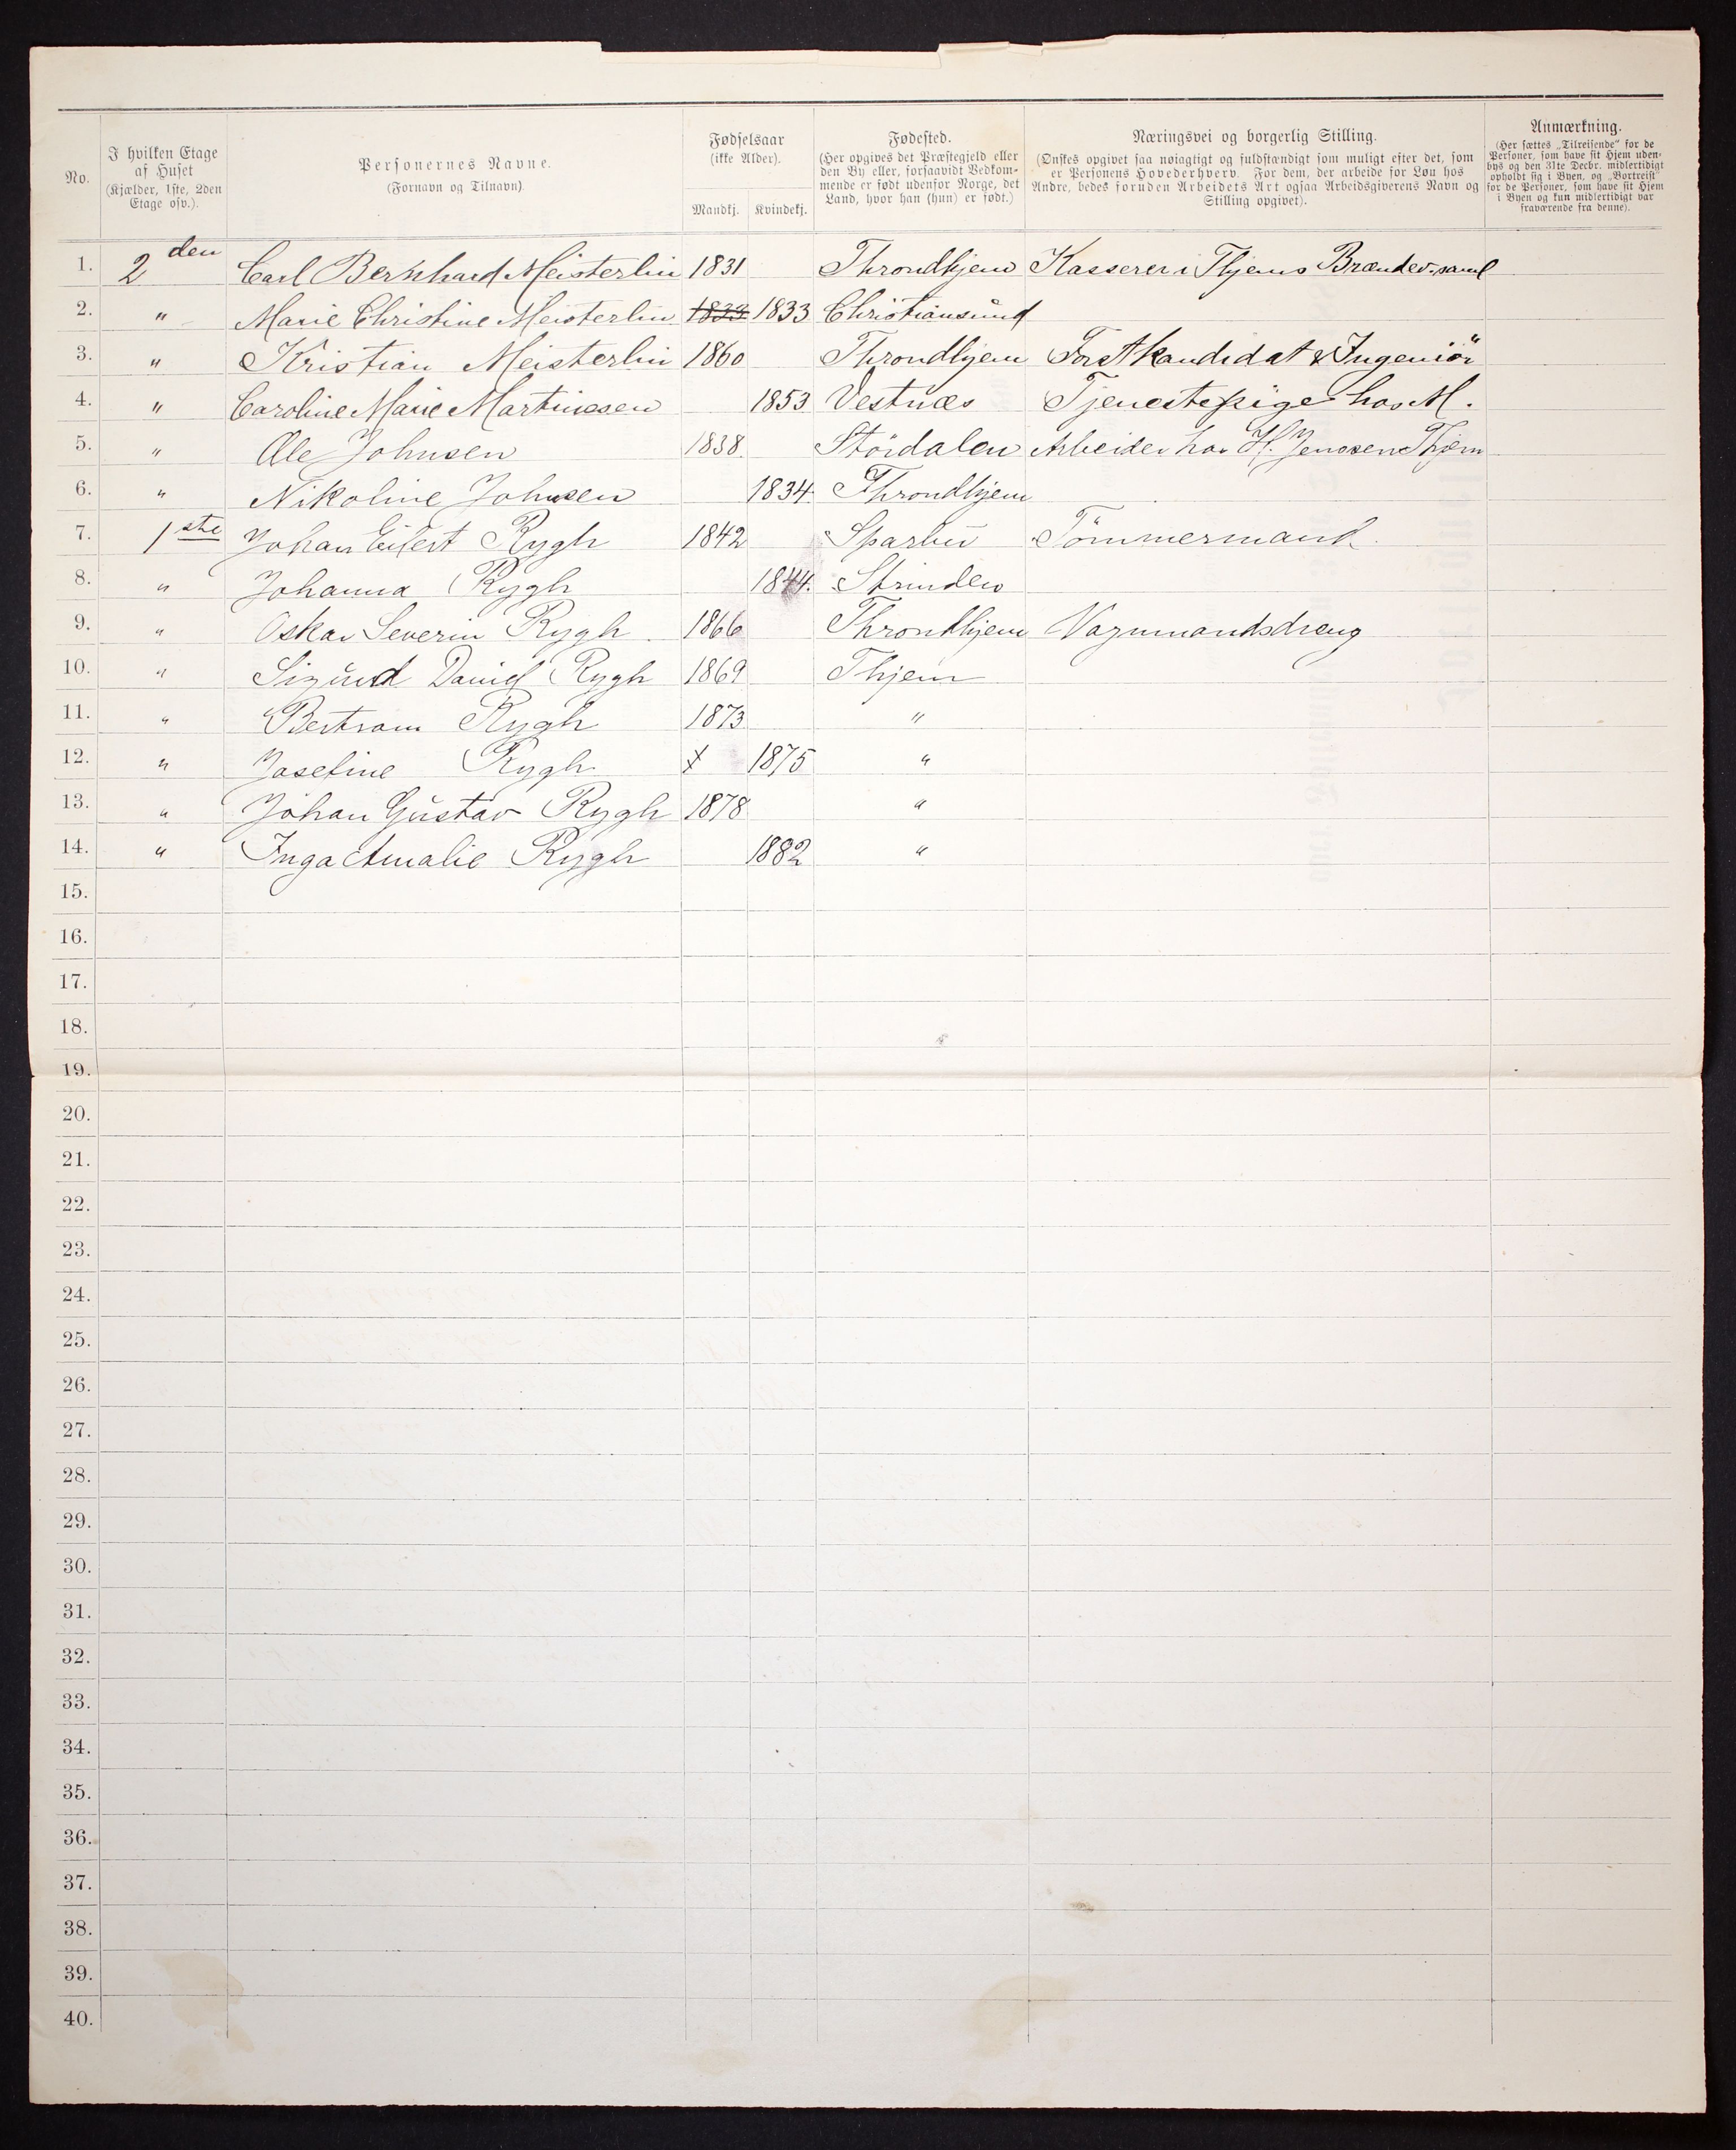 No.
I hvilken Etage af Huset (Kjælder, 1ste, 2den Etage osv.).
Personernes Navne. (Fornavn og Tilnavn)
Fødselsaar (ikke Alder). Mandkj. Kvindekj.
Fødested. (Her opgives det Præstegjeld eller den By eller, forsaavidt Vedkommende er født udenfor Norge, det Land, hvor han (hun) er født.)
Næringsvei og borgerlig Stilling. (Ønskes opgivet saa nøiagtigt og fuldstændigt som muligt efter det, som er Personens Hovederhverv. For dem, der arbeide for Løn hos Andre, bedes foruden Arbeidets Art ogsaa Arbeidsgiverens Navn og Stilling opgivet).
Anmærkning. (Her sættes „Tilreisende“ for de Personer, som have sit Hjem udenbys og den 31te Decbr. midlertidigt opholdt sig i Byen, og „Bortreist“ for de Personer, som have sit Hjem i Byen og kun midlertidigt var fraværende fra denne).
1. 2den Carl Bernhard Meisterlin 1831 Throndhjem Kasserer i Thjems
2. " Marie Christine Meisterlin 1833 1833 Christiansund
3. " Kristian Meisterlin 1860 Throndhjem Forstkandidat & Ingeniör
4. " Caroline Marie Martinesen 1853 Vestnæs Tjenestepige hos M.
5. " Ole Johnsen 1838. Stördalen Arbeider hos H. Jenssen Thjem
6. " Nikoline Johnsen 1834. Throndhjem
7. 1ste Johan Eilert Rygh 1842 Sparbu Tömmermand.
8. " Johanna Rygh 1844. Strinden
9. " Oskar Severin Rygh 1866 Throndhjem Vognmandsdreng
10. " Sigurd Daniel Rygh 1869 Thjem
11. " Bertram Rygh 1873 "
12. " Josefine Rygh 1875 "
13. " Johan Gustav Rygh 1878 "
14. " Inga Amalie Rygh 1882 "
15.
16.
17.
18.
19.
20.
21.
22.
23.
24.
25.
26.
27.
28.
29.
30.
31.
32.
33.
34.
35.
36.
37.
38.
39.
40.